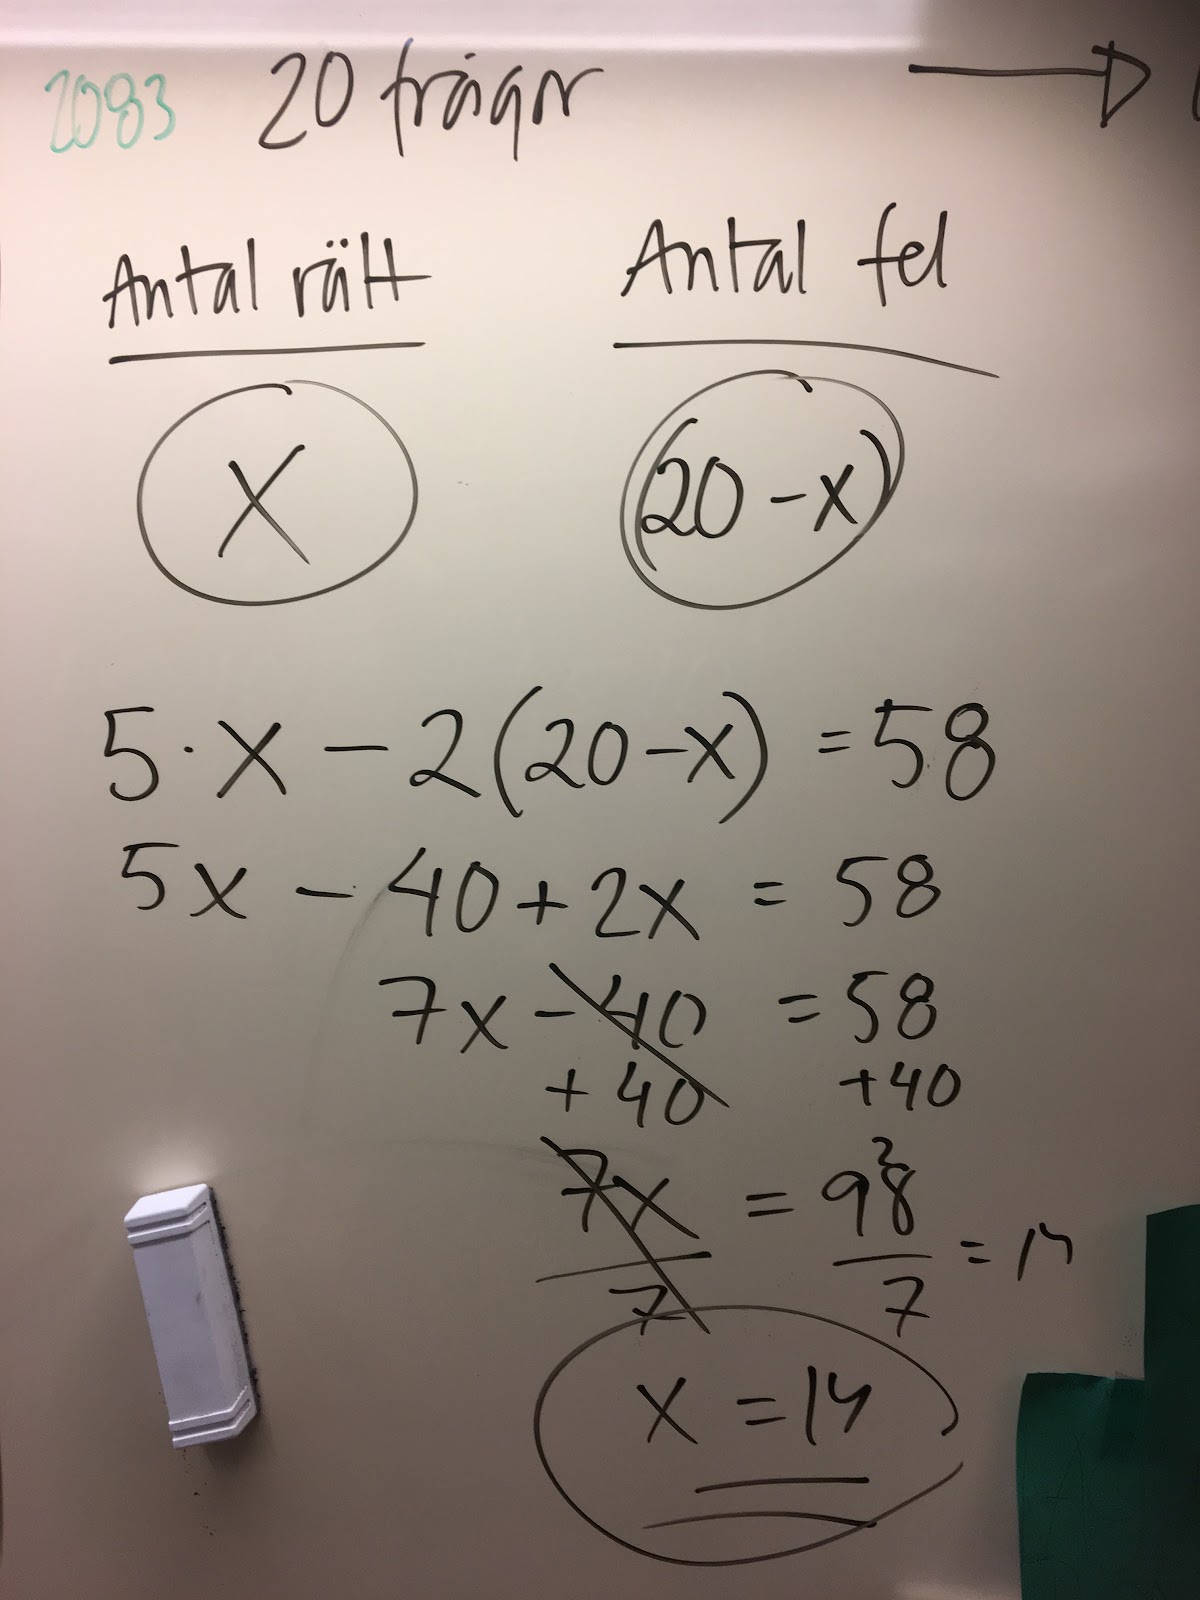 2083 20 frågor
Antal rätt Antal fel
x (20-x)
5·x - 2(20-x) = 58
5x - 40 + 2x = 58
7x - 40 = 58
+ 40 +40
7x = 98
2
7 7 = 14
x = 14